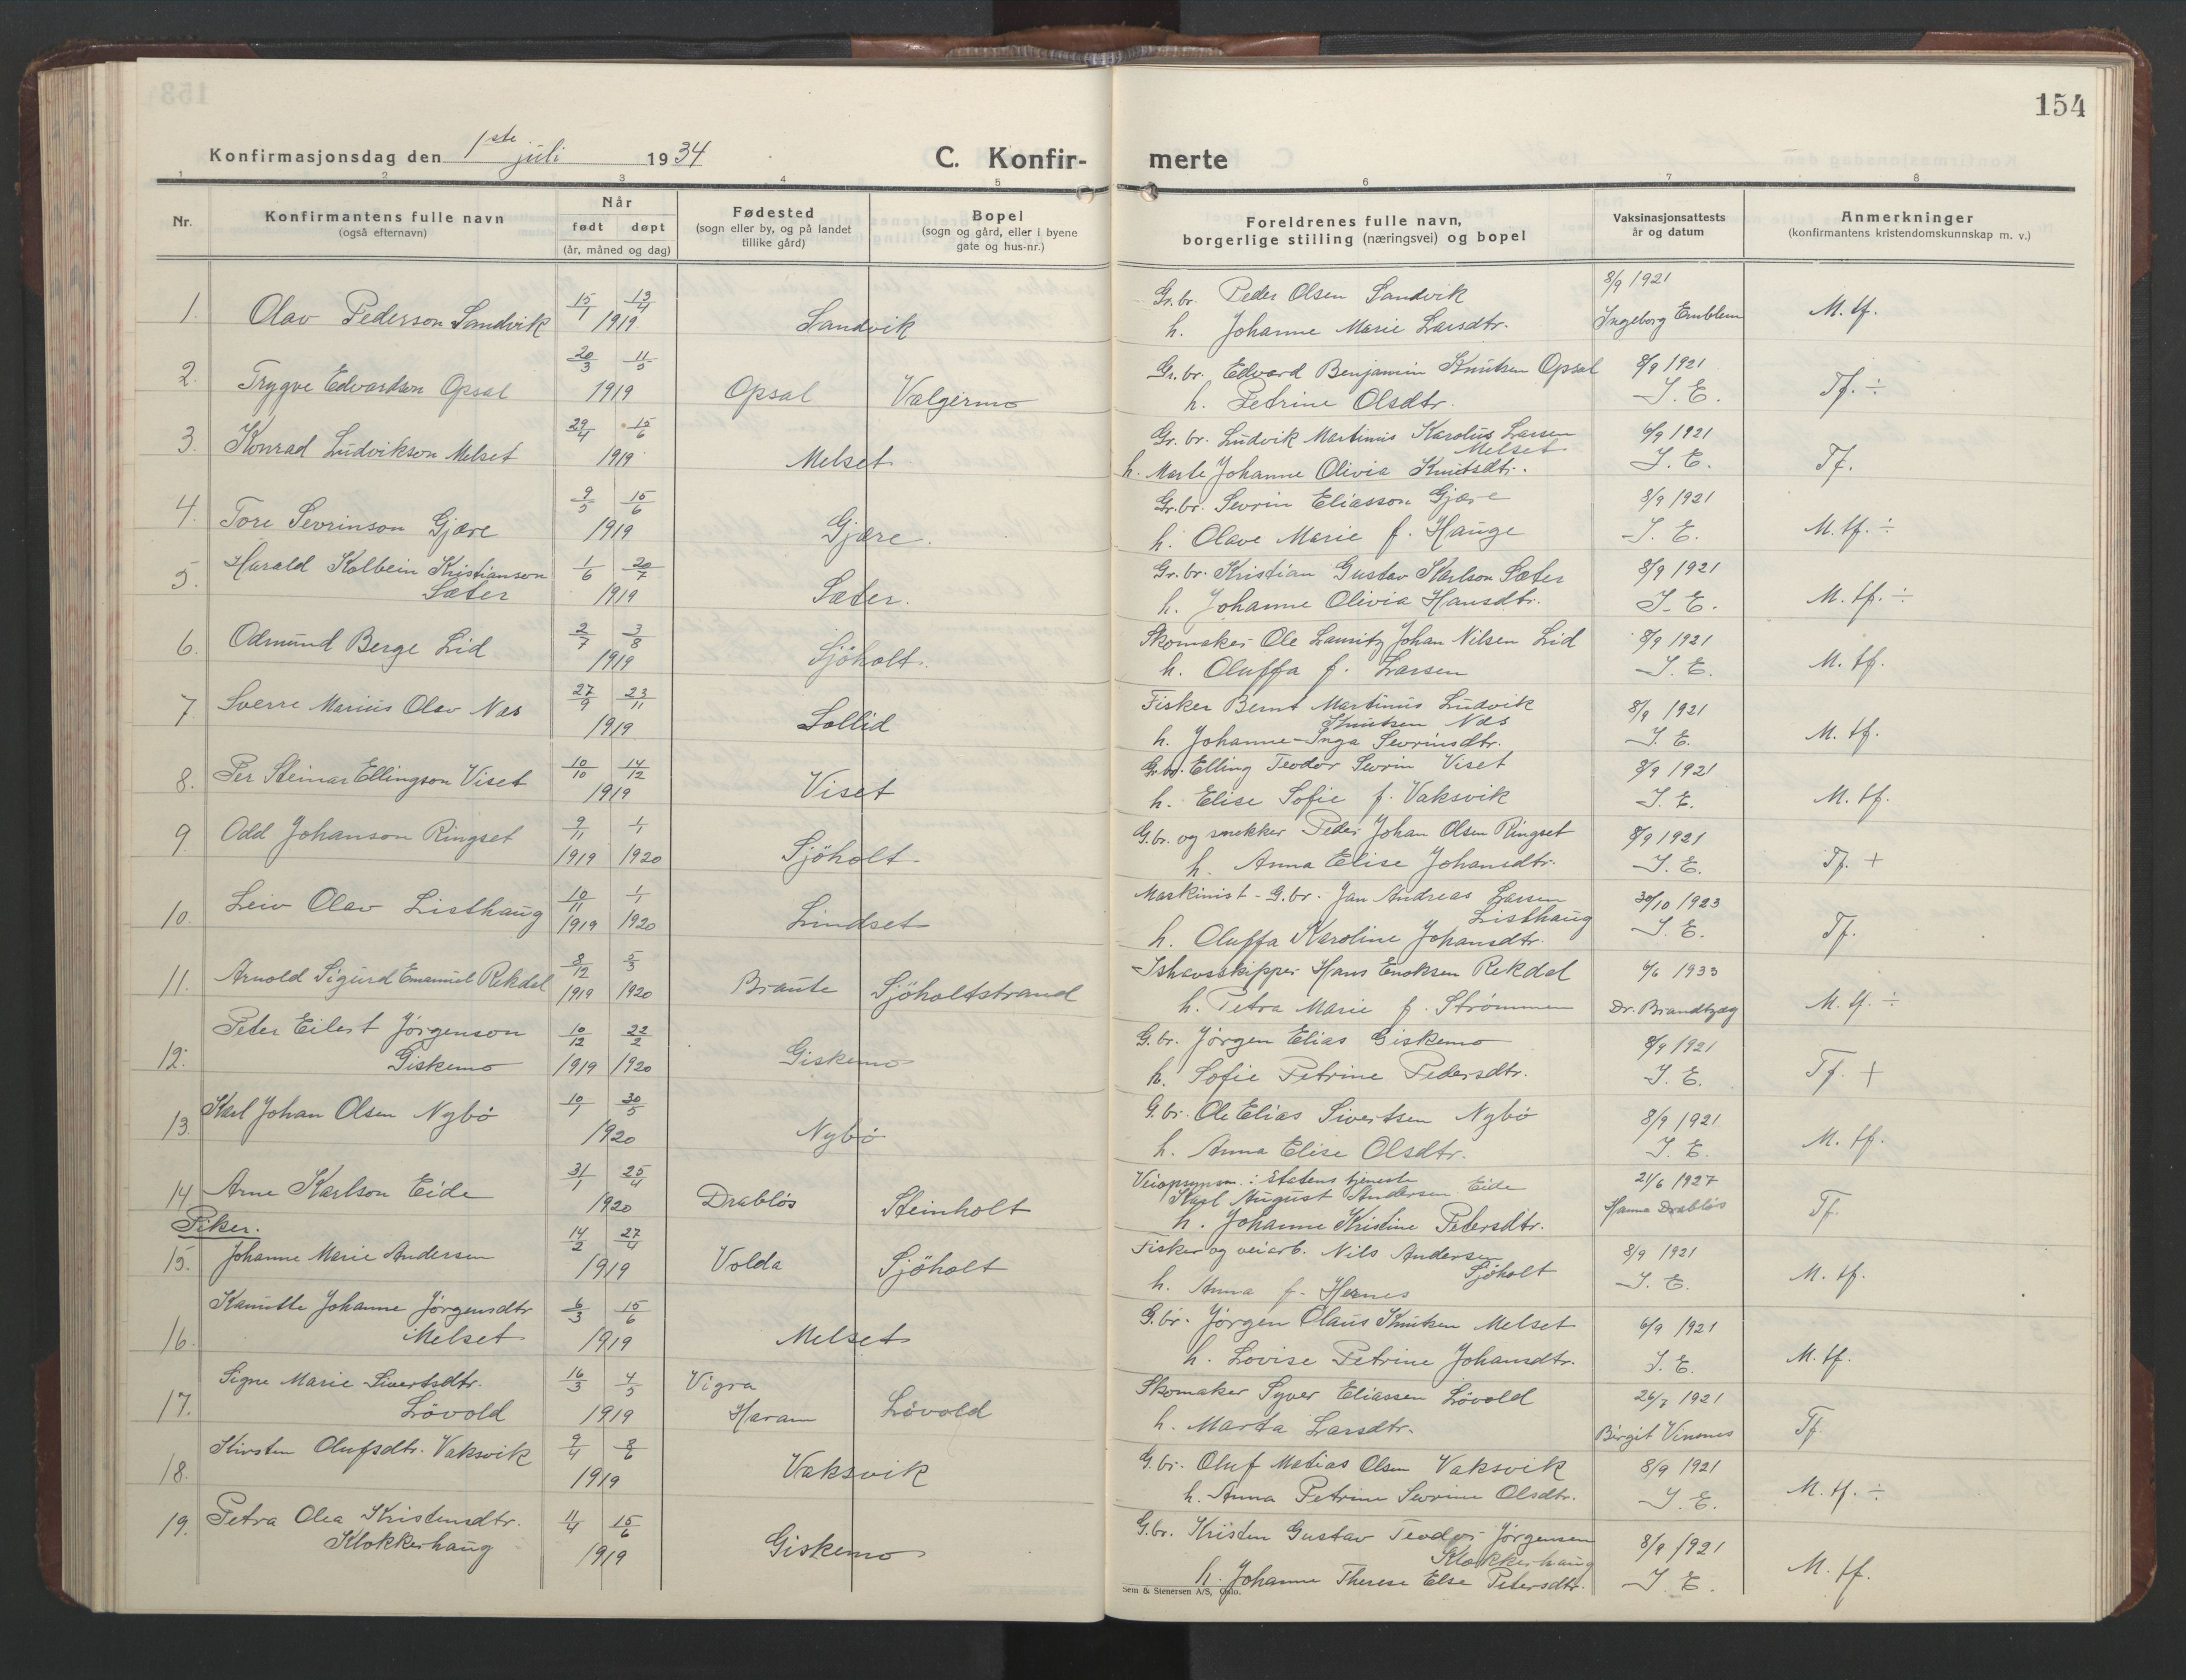 154
Konfirmasjonsdag den 1ste juli 1934
C. Konfir- merte
1 2 3 4 5 6 7 8
Nr. Konfirmantens fulle navn (også efternavn) Når født døpt (år, måned og dag) Fødested (sogn eller by, og på landet tillike gård) Bopel (sogn og gård, eller i byene gate og hus-nr.) Foreldrenes fulle navn, borgerlige stilling (næringsvei) og bopel Vaksinasjonsattests år og datum Anmerkninger (konfirmantens kristendomskunnskap m. v.)
1. Olav Pederson Sandvik 15/1 13/4 1919 Sandvik Gr. br. Peder Olsen Sandvik 8/9 1921 M. tf.
h. Johanne Marie Larsdtr. Ingeborg Emblem
2. Trygve Edvardson Opsal 20/3 11/5 1919 Opsal Valgermo Gr. br. Edvard Benjamin Knutsen Opsal 8/9 1921 Tf. ÷
h. Petrine Olsdtr. I. E.
3. Konrad Ludvikson Melset 29/4 15/6 1919 Melset Gr. br. Ludvik Martinus Karolus Larsen Melset 6/9 1921 Tf.
h. Marte Johanne Olivia Knutsdtr. I. E.
4. Tore Sevrinson Gjære 9/5 15/6 1919 Gjære. Gr. br. Sevrin Eliasson Gjære 8/9 1921 M. tf. ÷
h. Olave Marie f. Hauge I. E.
5. Harald Kolbein Kristianson Sæter 1/6 20/7 1919 Sæter. Gr. br. Kristian Gustav Karlson Sæter 8/9 1921 M. tf. ÷
h. Johanne Olivia Hansdtr. I. E.
6. Odmund Berge Lid 2/7 3/8 1919 Sjöholt. Skomaker Ole Lauritz Johan Nilsen Lid 8/9 1921 M. tf.
h. Oluffa f. Larsen I. E.
7. Sverre Marius Olav Nes 27/9 23/11 1919 Sollid Fisker Bernt Martinus Ludvik Knutsen Nes 8/9 1921 M. tf.
h. Johanne Inga Sevrinsdtr. I. E.
8. Per Steinar Ellingson Viset 10/10 14/12 1919 Viset Gr. br. Elling Teodor Sevrin Viset 8/9 1921 M. tf.
h. Elise Sofie f. Vaksvik I. E.
9 Odd Johanson Ringset 9/11 1919 1/1 1920 Sjöholt G. br. og snekker Peder Johan Olsen Ringset 8/9 1921 Tf. +
h. Anna Elise Johansdtr. I. E.
10. Leiv Olav Listhaug 10/11 1919 1/1 1920 Lindset Maskinist - G. br. Jan Andreas Larsen Listhaug 30/10 1923 Tf.
h. Oluffa Karoline Johansdtr. I. E.
11. Arnold Sigurd Emanuel Rekdal 8/12 1919 5/3 1920 Braute Sjöholtstrand Ishavsskipper Hans Enoksen Rekdal 6/6 1933 M. tf. ÷
h. Petra Marie f. Strømmen Dr. Brandtzæg
12. Peter Eilert Jörgenson Giskemo 10/12 1919 22/2 1920 Giskemo G. br. Jörgen Elias Giskemo 8/9 1921 Tf. +
h. Sofie Petrine Pedersdtr. I. E.
13 Karl Johan Olsen Nybö 10/1 30/5 1920 Nybö G. br. Ole Elias Sivertsen Nybö 8/9 1921 M. tf.
h. Anna Elise Olsdtr. I. E.
14 Arne Karlson Eide 31/1 25/4 1920 Drablös Steinholt Veiopsynsm. i statens tjeneste Karl August Andersen Eide 21/6 1927 Tf.
h. Johanne Kristine Petersdtr. Hanna Drabløs
Piker.
15. Johanne Marie Andersen 14/2 27/4 1919 Volda Sjöholt Fisker og veiarb. Nils Andersen Sjöholt 8/9 1921 M. tf.
h. Anna f. Hernes I. E.
16. Kamille Johanne Jørgensdtr Melset 6/3 15/6 1919 Melset G. br. Jörgen Olaus Knutsen Melset 6/9 1921 M. tf.
h. Lovise Petrine Johansdtr. I. E.
17. Signe Marie Sivertsdtr. Lövold 16/3 4/5 1919 Vigra Haram Lövold Skomaker Syver Eliassen Lövold 26/7 1921 Tf.
h. Marta Larsdtr. Birgit Vinnes
18. Kirsten Olufsdtr. Vaksvik 9/4 8/6 1919 Vaksvik G. br. Oluf Matias Olsen Vaksvik 8/9 1921 M. tf. ÷
h. Anna Petrine Sevrine Olsdtr. I. E.
19. Petra Olea Kristensdtr. Klokkerhaug 11/4 15/6 1919 Giskemo G. br. Kristen Gustav Teodor Jörgensen Klokkerhaug 8/9 1921 M. tf.
h. Johanne Therese Else Petersdtr. I. E.
Sem & Stenersen A/S, Oslo.